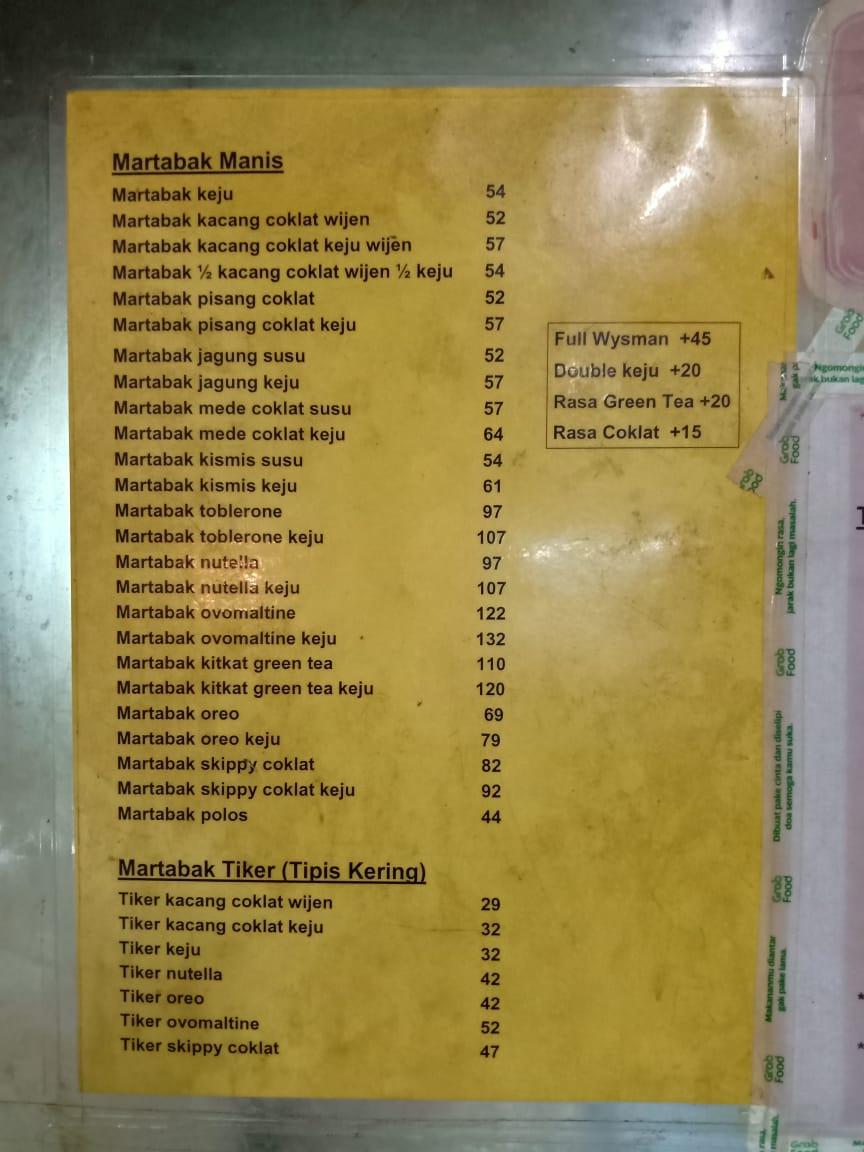 Martabak Manis
Martabak keju 54
Martabak kacang coklat wijen 52
Martabak kacang coklat keju wijen 57
Martabak ½ kacang coklat wijen ½ keju 54
Martabak pisang coklat 52
Martabak pisang coklat keju 57
Martabak jagung susu 52
Martabak jagung keju 57
Martabak mede coklat susu 57
Martabak mede coklat keju 64
Martabak kismis susu 54
Martabak kismis keju 61
Martabak toblerone 97
Martabak toblerone keju 107
Martabak nutella 97
Martabak nutella keju 107
Martabak ovomaltine 122
Martabak ovomaltine keju 132
Martabak kitkat green tea 110
Martabak kitkat green tea keju 120
Martabak oreo 69
Martabak oreo keju 79
Martabak skippy coklat 82
Martabak skippy coklat keju 92
Martabak polos 44
Full Wysman +45
Double keju +20
Rasa Green Tea +20
Rasa Coklat +15
Martabak Tiker (Tipis Kering)
Tiker kacang coklat wijen 29
Tiker kacang coklat keju 32
Tiker keju 32
Tiker nutella 42
Tiker oreo 42
Tiker ovomaltine 52
Tiker skippy coklat 47
Grab
Food
Ngomongin
bukan lag
Grab
Food
Ngomongin rasa,
jarak bukan lagi masalah.
Grab
Food
Dibuat pake cinta dan diselipi
doa semoga kamu suka.
Grab
Food
Makananmu diantar
gak pake lama.
Grab
Food
Grab